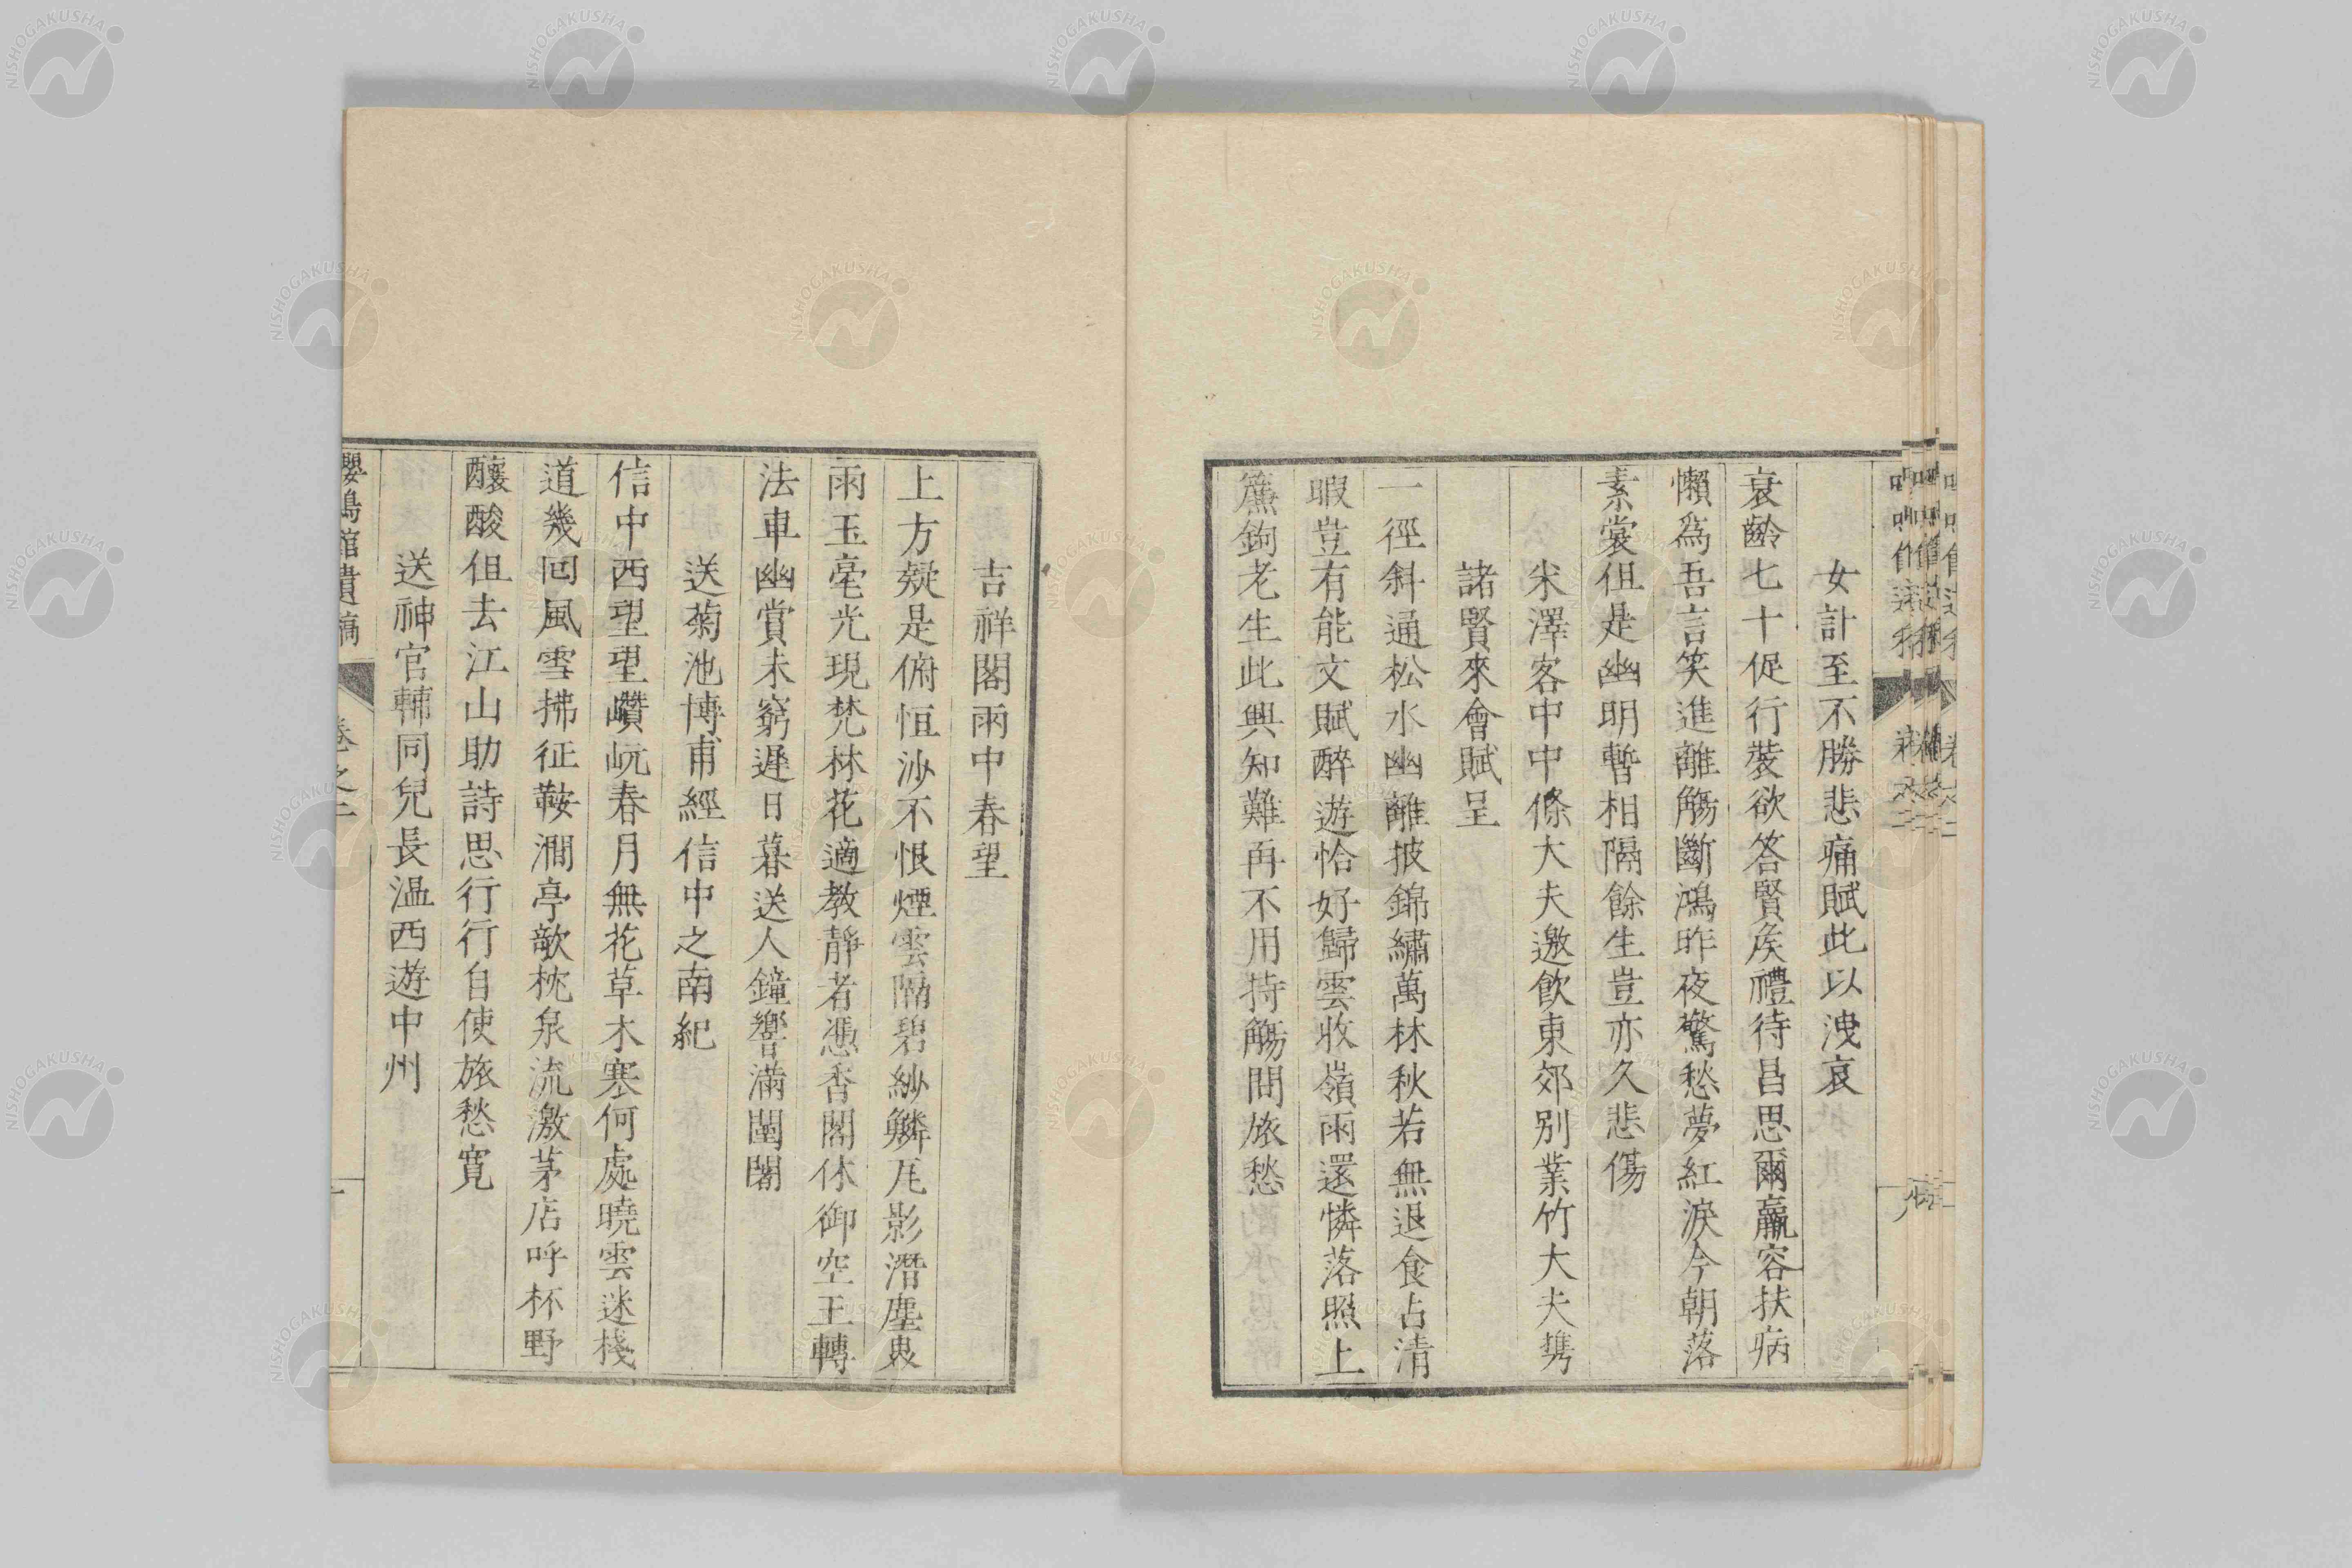 女計至不勝悲痛賦此以洩哀
衰齡七十促行裝欲答賢矦禮待昌思爾羸容扶病
懶爲吾言笑進離觴斷鴻昨夜驚愁夢紅淚今朝落
素裳但是幽明暫相隔餘生豈亦久悲傷
米澤客中中條大夫邀飮東郊別業竹大夫携
諸賢來會賦呈
一徑斜通松水幽離披錦繡萬林秋若無退食占清
暇豈有能文賦醉遊恰好歸雲收嶺雨還憐落照上
簾鉤老生此興知難再不用持觴問旅愁
吉祥閣雨中春望
上方疑是俯恒沙不恨煙雲隔碧紗鱗瓦影潛塵界
雨玉毫光現梵林花適教靜者憑香閣休御空王轉
法車幽賞未窮遲日暮送人鐘響滿闉闍
送菊池博甫經信中之南紀
信中西望望巑岏春月無花草木寒何處曉雲迷棧
道幾回風雪拂征鞍澗亭欹枕泉流激茅店呼杯野
釀酸但去江山助詩思行行自使旅愁寬
送神官輔同兒長溫西遊中州
嚶鳴館遺稿 卷之二
NISHOGAKUSHA